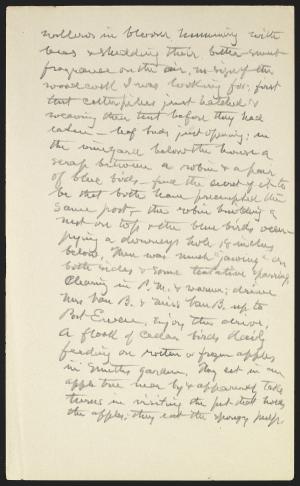 willows in bloom humming with
bees & shedding their bitter-sweet
fragrance on the air, no sign of the
woodcock I was looking for; find
tent caterpillars just hatched &
weaving their tent before they had
eaten - leaf buds just opening; in
the vineyard below the house a
scrap between a robin & a pair
of blue birds - find the secret of it to
be that both have preempted the
same post, the robin building a
nest on top & the blue birds occu-
pying a downeys hole 18 inches
below, There was much "jawing" on
both sides & some tentative sparring,
Clearing in P.M. & warm; drive
Mrs Van B. & Miss Van B. up to
Port Ewen, Enjoy the drive,
A flock of Cedar birds daily
feeding on rotten & frozen apples
in Smiths garden, They sit in an
apple tree near by & apparently take
turns in visiting the pit that holds
the apples; they eat the spongy pulp,